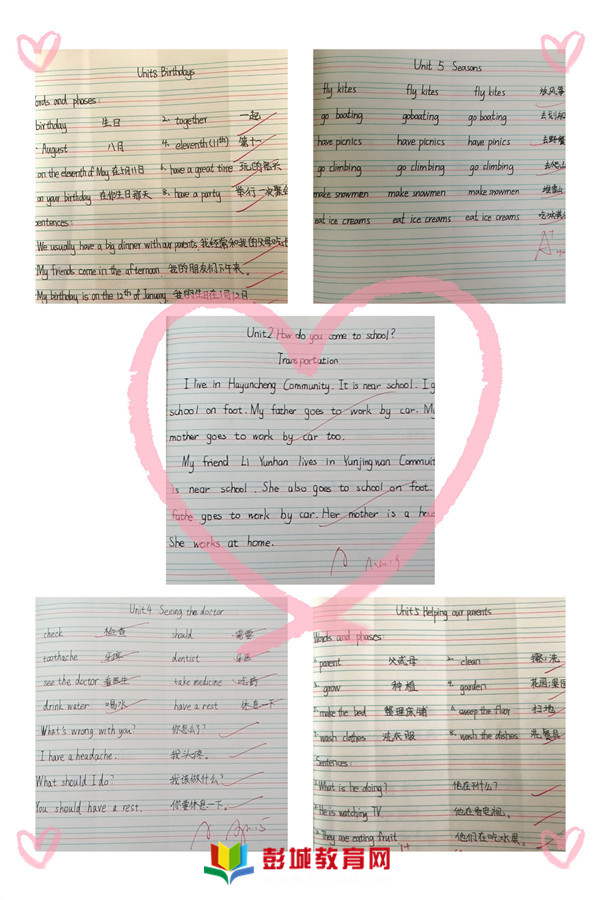 Unit8 Birthdays
ords and phases:
birthday 生日 2. together 一起
August 八月 4. eleventh (11th) 第十一
on the eleventh of May 在5月11日 6. have a great time 玩的高兴
on your birthday 在你生日那天 8. have a party 举行一次聚会
entences:
We usually have a big dinner with our parents. 我经常和我的父母吃
My friends come in the afternoon. 我的朋友们下午来。
My birthday is on the 12th of January. 我的生日在1月12日
Unit 5 Seasons
fly kites fly kites fly kites 放风筝
go boating goboating go boating 去划船
have picnics have picnics have pinics 去野餐
go climbing go climbing go climbing 去爬山
make snowmen make snowmen make snowmen 堆雪人
eat ice creams eat ice creams eat ice creams 吃冰淇
A+
Unit2 How do you come to school?
Transportation
I live in Hayuncheng Community. It is near school. I g
school on foot. My father goes to work by car. My
mother goes to work by car too.
My friend Li Yunhan lives in Yunjingwan Communit
is near school. She also goes to school on foot.
fathe goes to work by car. Her mother is a hou
She works at home.
Unit4 Seeing the doctor
check 检查 should 需要
toothache 牙疼 dentist 牙医
see the doctor 看医生 take medicine 吃药
drink water 喝水 have a rest 休息一下
What's wrong with you? 你怎么了?
I have a headache. 我头疼。
What should I do? 我该做什么?
You should have a rest. 你要休息一下。
Unit5 Helping our parents
Words and phases:
1. parent 父或母 2. clean 擦;洗
3. grow 种植 4. garden 花园;果园
5. make the bed 整理床铺 6. sweep the floor 扫地
7. wash clothes 洗衣服 8. wash the dishes 洗餐具
Sentences:
1. What is he doing? 他在干什么?
2. He is watching TV. 他在看电视。
3. They are eating fruit. 他们在吃水果。
彭城教育网